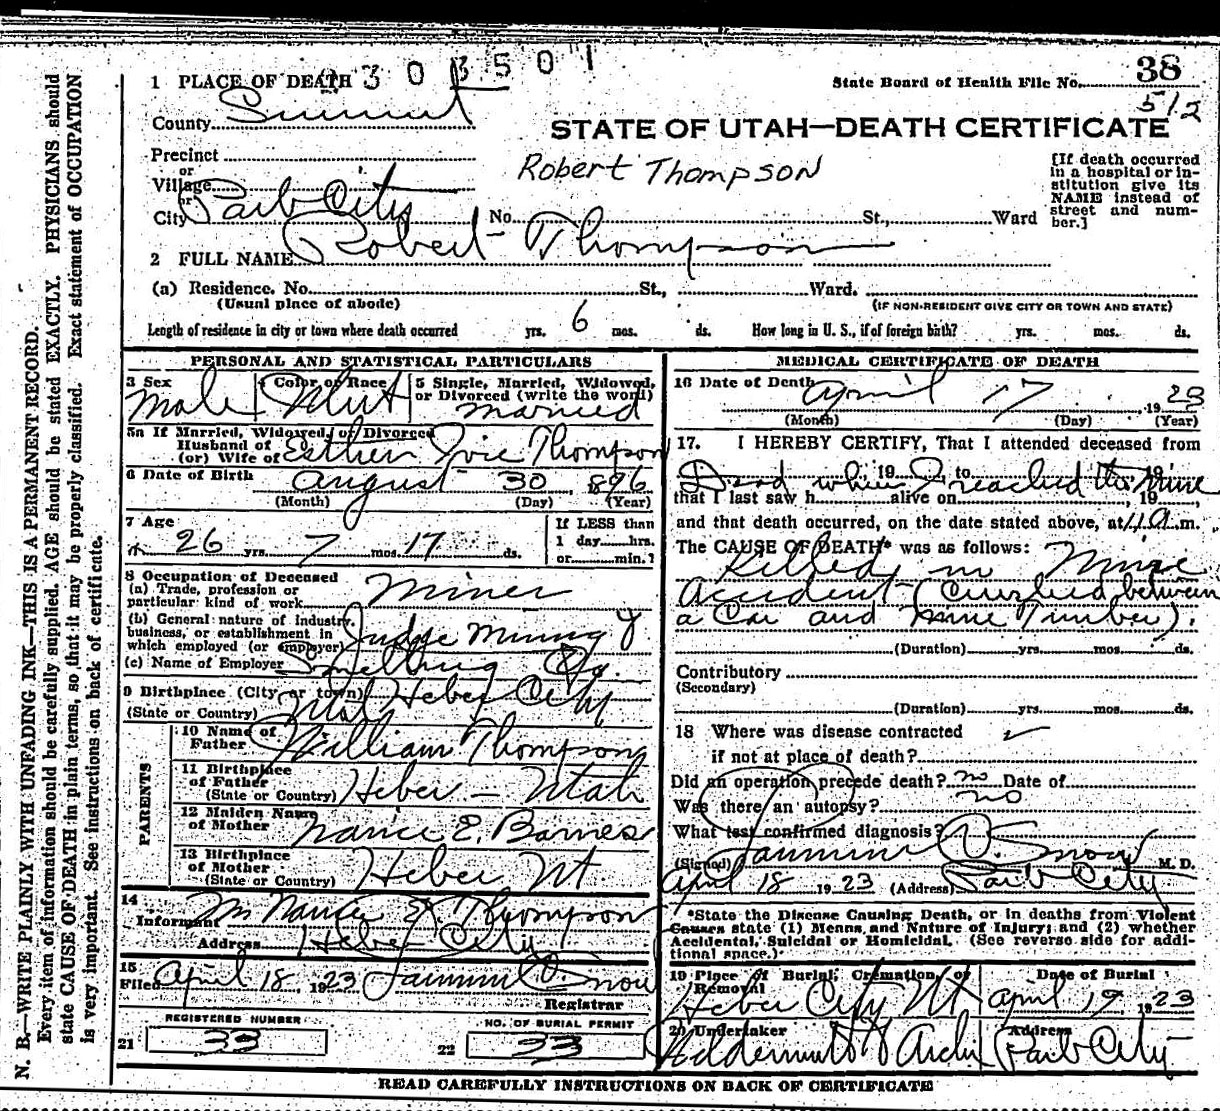 2303501
1 PLACE OF DEATH
State Board of Health File No. 38
512
County Summit
STATE OF UTAH—DEATH CERTIFICATE
Precinct
or
Village
or
City Park City No. St., Ward
Robert Thompson
[If death occurred
in a hospital or in-
stitution give its
NAME instead of
street and num-
ber.]
2 FULL NAME Robert Thompson
(a) Residence. No. St., Ward.
(Usual place of abode) (IF NON-RESIDENT GIVE CITY OR TOWN AND STATE)
Length of residence in city or town where death occurred yrs. 6 mos. ds. How long in U. S., if of foreign birth? yrs. mos. ds.
PERSONAL AND STATISTICAL PARTICULARS
3 Sex 4 Color or Race 5 Single, Married, Widowed,
or Divorced (write the word)
Male White Married
5a If Married, Widowed, or Divorced
Husband of
(or) Wife of Esther Ivie Thompson
6 Date of Birth August 30, 1896
(Month) (Day) (Year)
7 Age If LESS than
1 day hrs.
or min.?
26 yrs. 7 mos. 17 ds.
8 Occupation of Deceased
(a) Trade, profession or
particular kind of work Miner
(b) General nature of industry,
business, or establishment in
which employed (or employer) Judge Mining &
(c) Name of Employer Smelting Co.
9 Birthplace (City or town) Heber City
(State or Country) Utah
PARENTS
10 Name of
Father William Thompson
11 Birthplace
of Father
(State or Country) Heber — Utah
12 Maiden Name
of Mother Nancie E. Barnes
13 Birthplace
of Mother
(State or Country) Heber Ut
14
Informant Nancie E. Thompson
Address Heber City
15
Filed April 18 1923
Registrar
REGISTERED NUMBER NO. OF BURIAL PERMIT
21 33 22 33
MEDICAL CERTIFICATE OF DEATH
16 Date of Death April 17 1923
(Month) (Day) (Year)
17. I HEREBY CERTIFY, That I attended deceased from
Dead when 19 I reached the Mine 19
to
that I last saw h alive on , 19
and that death occurred, on the date stated above, at 11 a.m.
The CAUSE OF DEATH* was as follows:
Killed in Mine
Accident (Crushed between
a Car and Mine Timber).
(Duration) yrs. mos. ds.
Contributory
(Secondary)
(Duration) yrs. mos. ds.
18 Where was disease contracted
if not at place of death?
Did an operation precede death? no Date of
Was there an autopsy? no
What test confirmed diagnosis?
(Signed) Snow M. D.
April 18 1923 (Address) Park City
*State the Disease Causing Death, or in deaths from Violent
Causes state (1) Menns and Nature of Injury; and (2) whether
Accidental, Suicidal or Homicidal. (See reverse side for addi-
tional space.)
19 Place of Burial, Cremation, or Date of Burial
Removal
Heber City Ut April 19 1923
20 Undertaker Address
Park City
READ CAREFULLY INSTRUCTIONS ON BACK OF CERTIFICATE
N. B.—WRITE PLAINLY WITH UNFADING INK—THIS IS A PERMANENT RECORD.
Every item of information should be carefully supplied. AGE should be stated EXACTLY. PHYSICIANS should
state CAUSE OF DEATH in plain terms, so that it may be properly classified. Exact statement of OCCUPATION
is very important. See instructions on back of certificate.